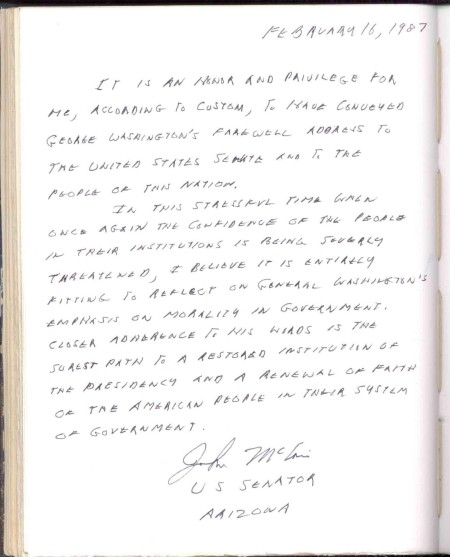 FEBRUARY 16, 1987
IT IS AN HONOR AND PRIVILEGE FOR
ME, ACCORDING TO CUSTOM, TO HAVE CONVEYED
GEORGE WASHINGTON'S FAREWELL ADDRESS TO
THE UNITED STATES SENATE AND TO THE
PEOPLE OF THIS NATION.
IN THIS STRESSFUL TIME WHEN
ONCE AGAIN THE CONFIDENCE OF THE PEOPLE
IN THEIR INSTITUTIONS IS BEING SEVERLY
THREATENED, I BELIEVE IT IS ENTIRELY
FITTING TO REFLECT ON GENERAL WASHINGTON'S
EMPHASIS ON MORALITY IN GOVERNMENT.
CLOSER ADHERENCE TO HIS WORDS IS THE
SUREST PATH TO A RESTORED INSTITUTION OF
THE PRESIDENCY AND A RENEWAL OF FAITH
OF THE AMERICAN PEOPLE IN THEIR SYSTEM
OF GOVERNMENT.
John McCain
US SENATOR
ARIZONA